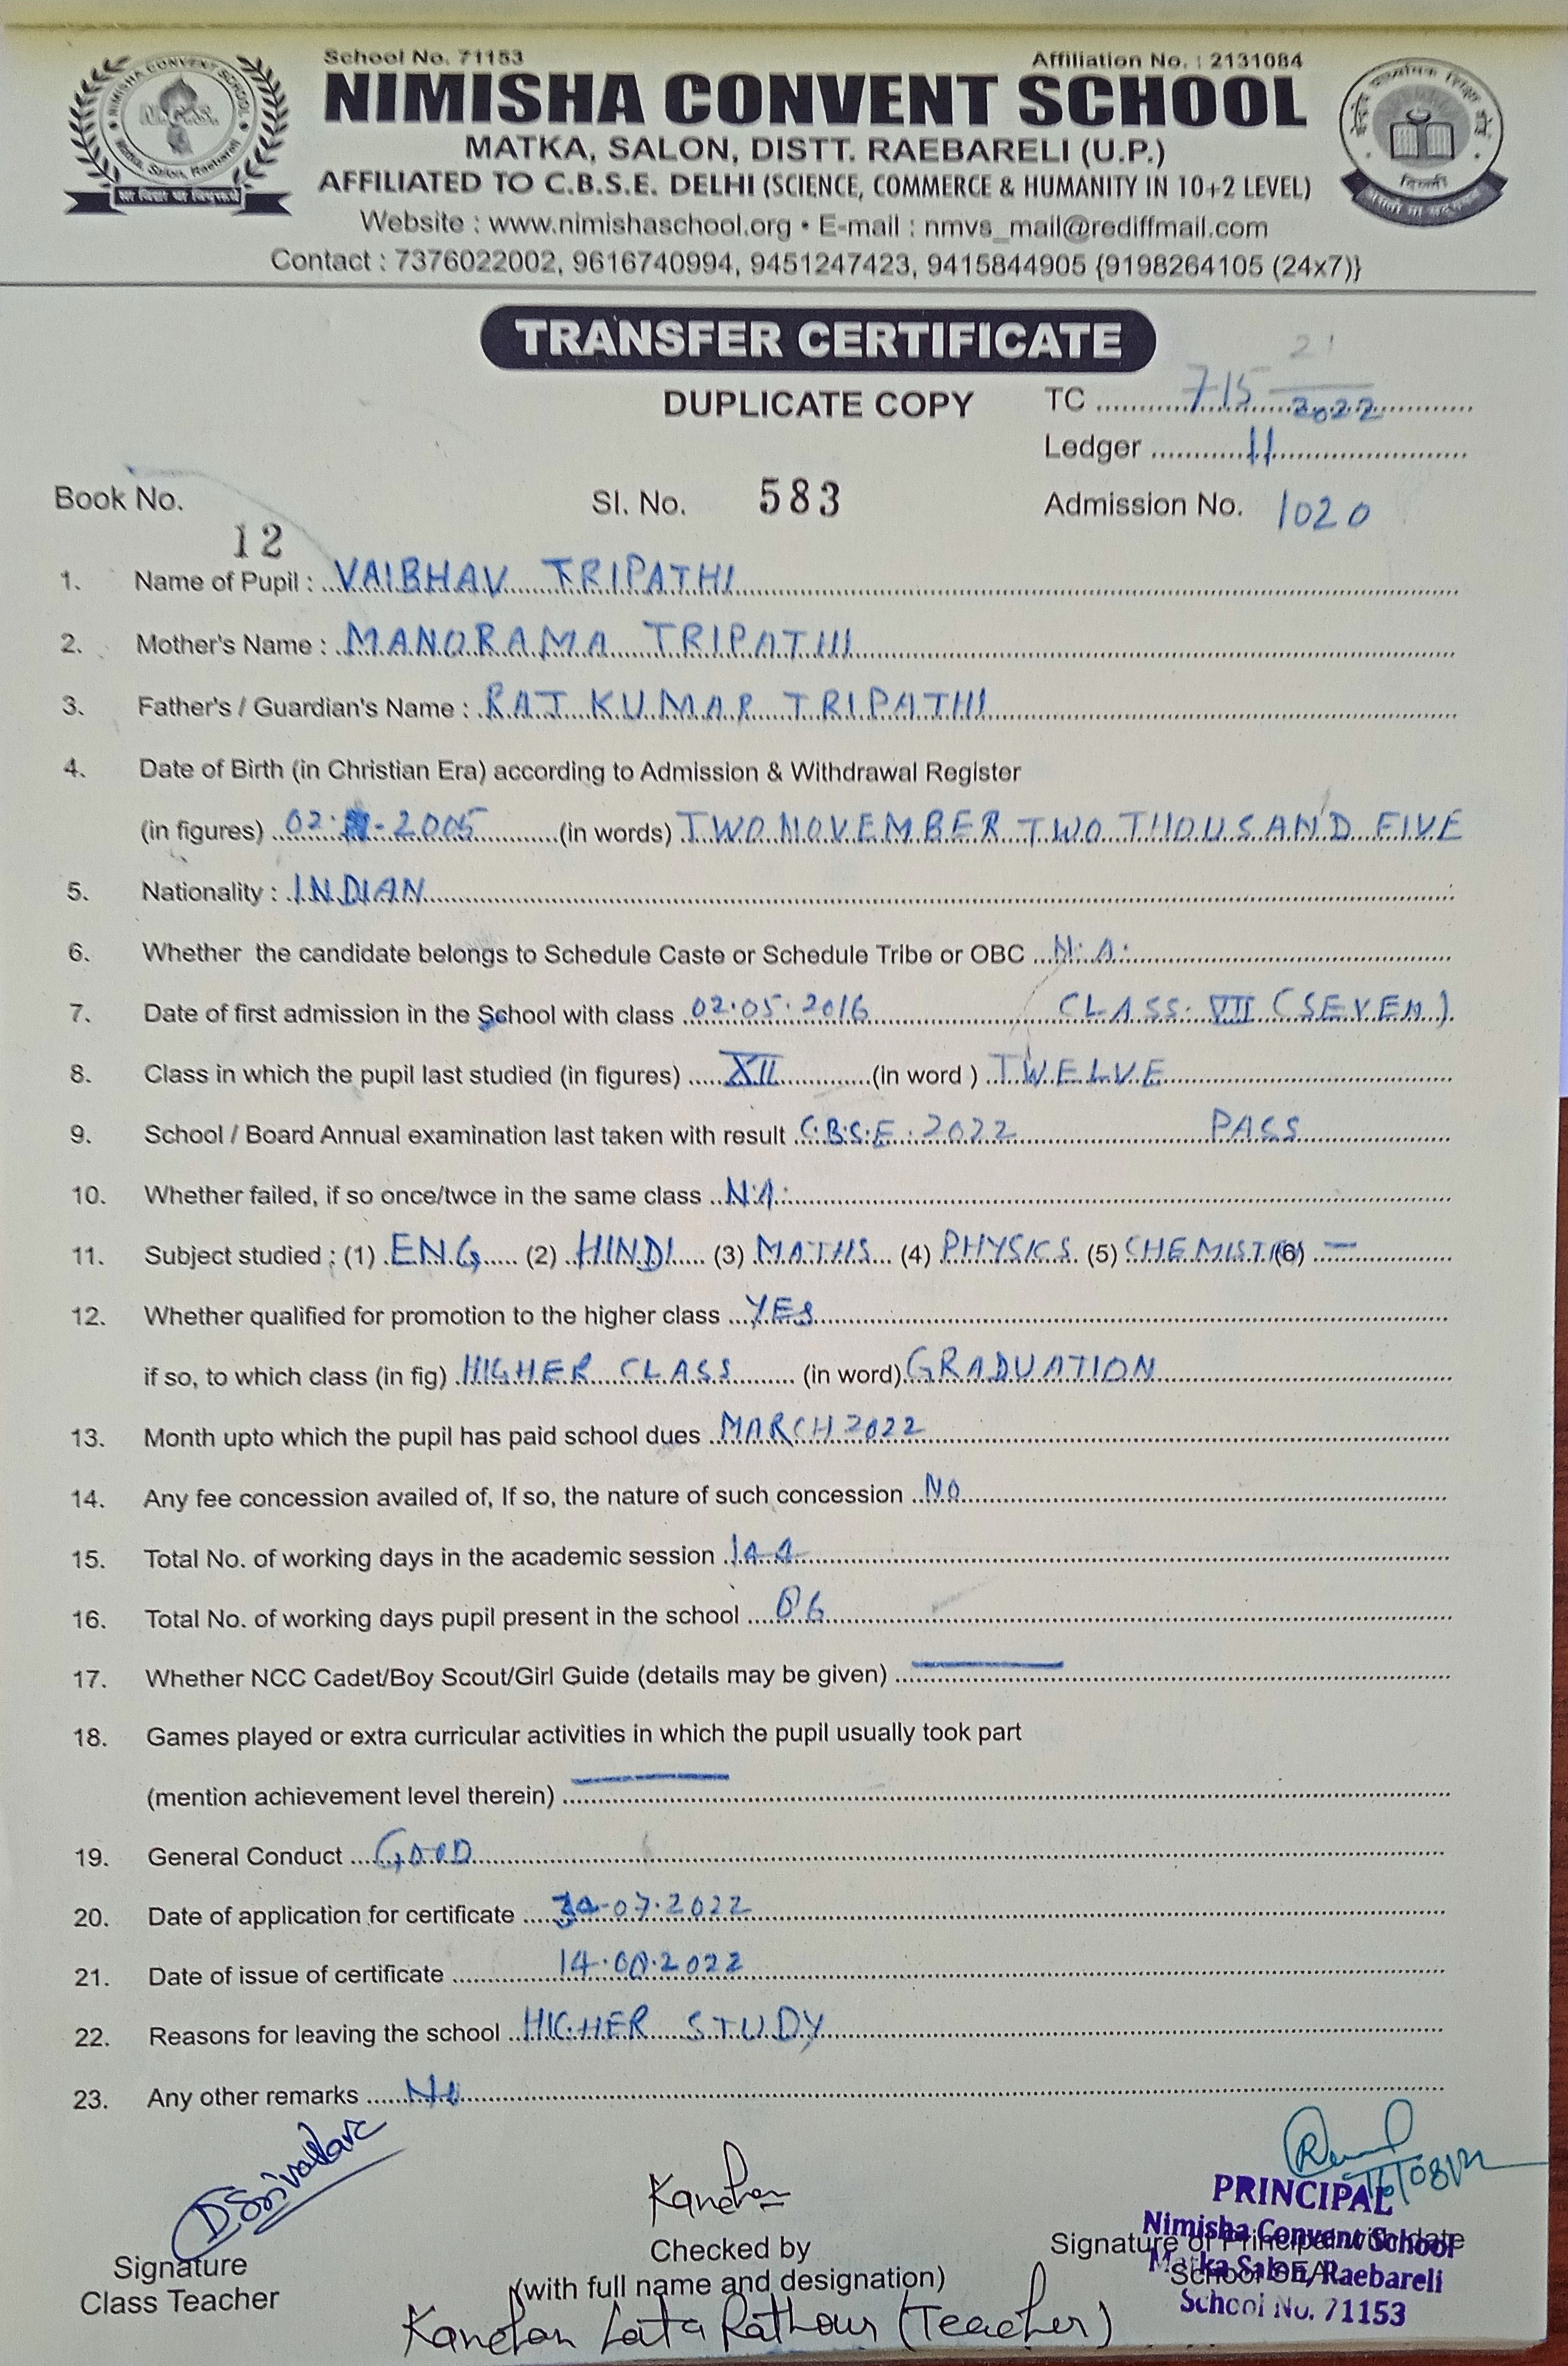 School No. 71153 Affiliation No. : 2131084
NIMISHA CONVENT SCHOOL
MATKA, SALON, DISTT. RAEBARELI (U.P.)
AFFILIATED TO C.B.S.E. DELHI (SCIENCE, COMMERCE & HUMANITY IN 10+2 LEVEL)
Website : www.nimishaschool.org • E-mail : nmvs_mail@rediffmail.com
Contact : 7376022002, 9616740994, 9451247423, 9415844905 {9198264105 (24x7)}
TRANSFER CERTIFICATE
DUPLICATE COPY TC 715 21/2022
Ledger 11
Book No. 12 Sl. No. 583 Admission No. 1020
1. Name of Pupil : VAIBHAV TRIPATHI
2. Mother's Name : MANORAMA TRIPATHI
3. Father's / Guardian's Name : RAJ KUMAR TRIPATHI
4. Date of Birth (in Christian Era) according to Admission & Withdrawal Register
(in figures) 02- -2005 (in words) TWO NOVEMBER TWO THOUSAND FIVE
5. Nationality : INDIAN
6. Whether the candidate belongs to Schedule Caste or Schedule Tribe or OBC N.A.
7. Date of first admission in the School with class 02.05.2016 CLASS. VII (SEVEN)
8. Class in which the pupil last studied (in figures) XII (in word ) TWELVE
9. School / Board Annual examination last taken with result C.B.S.E. 2022 PASS
10. Whether failed, if so once/twce in the same class N.A.
11. Subject studied : (1) ENG (2) HINDI (3) MATHS (4) PHYSICS (5) CHEMISTRY (6) —
12. Whether qualified for promotion to the higher class YES
if so, to which class (in fig) HIGHER CLASS (in word) GRADUATION
13. Month upto which the pupil has paid school dues MARCH 2022
14. Any fee concession availed of, If so, the nature of such concession NO
15. Total No. of working days in the academic session
16. Total No. of working days pupil present in the school
17. Whether NCC Cadet/Boy Scout/Girl Guide (details may be given) —
18. Games played or extra curricular activities in which the pupil usually took part
(mention achievement level therein) —
19. General Conduct GOOD
20. Date of application for certificate 30-07.2022
21. Date of issue of certificate 14.08.2022
22. Reasons for leaving the school HIGHER STUDY
23. Any other remarks No
DSrivastava Kanchan
PRINCIPAL
Nimisha Convent School
Matka Salon, Raebareli
School No. 71153
Signature Class Teacher
Checked by
(with full name and designation)
Signature of Principal with date
School SEAL
Kanchan Lata Rathour (Teacher)